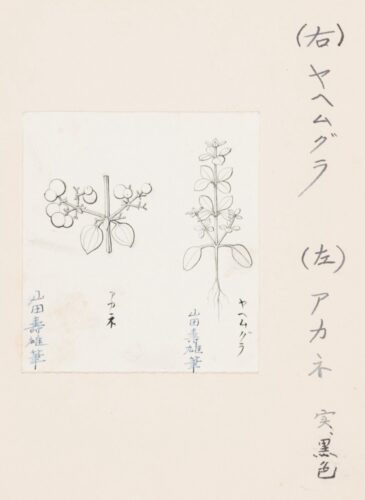 (右) ヤヘムグラ (左) アカネ 実、黒色
ヤヘムグラ
山田壽雄筆
アカネ
山田壽雄筆